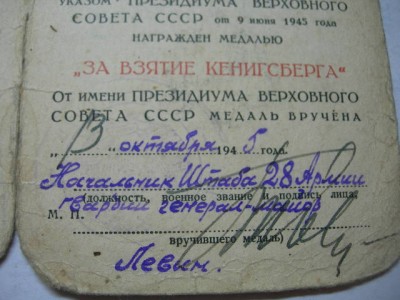 УКАЗОМ ПРЕЗИДИУМА ВЕРХОВНОГО
СОВЕТА СССР от 9 июня 1945 года
НАГРАЖДЕН МЕДАЛЬЮ
„ЗА ВЗЯТИЕ КЕНИГСБЕРГА“
От имени ПРЕЗИДИУМА ВЕРХОВНОГО
СОВЕТА СССР МЕДАЛЬ ВРУЧЕНА
„13“ октября 1945 года.
Начальник Штаба 28 Армии
(должность, военное звание и подпись лица,
М. П. генерал-майор
вручившего медаль)